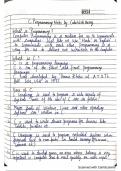 C Programming Notes by CodeWithHarry
What is Programming?
Computer Programming is a medium for us to communicate
with computers. Just like we use 'Hindi' or 'English'
to communicate with each other, Programming is a
way for us to deliver our instructions to the
What is C?
C is a programming language
C is one of the oldest and finest programming
languages
C was developed by Dennis Ritchie at AT&T's
Uses of C
C language is used to program a wide variety of
systems. Some of the uses of C are as follows:
Major parts of Windows, Linux and other operating
systems are written in C
C is used to write driver programs for devices like
Tablets, Printers etc.
C language is used to program embedded systems where
programs need to run faster in limited memory
C is used to develop games, an area where latency is very
important i.e. computer has to react quickly on user input
Scanned with CamScanner